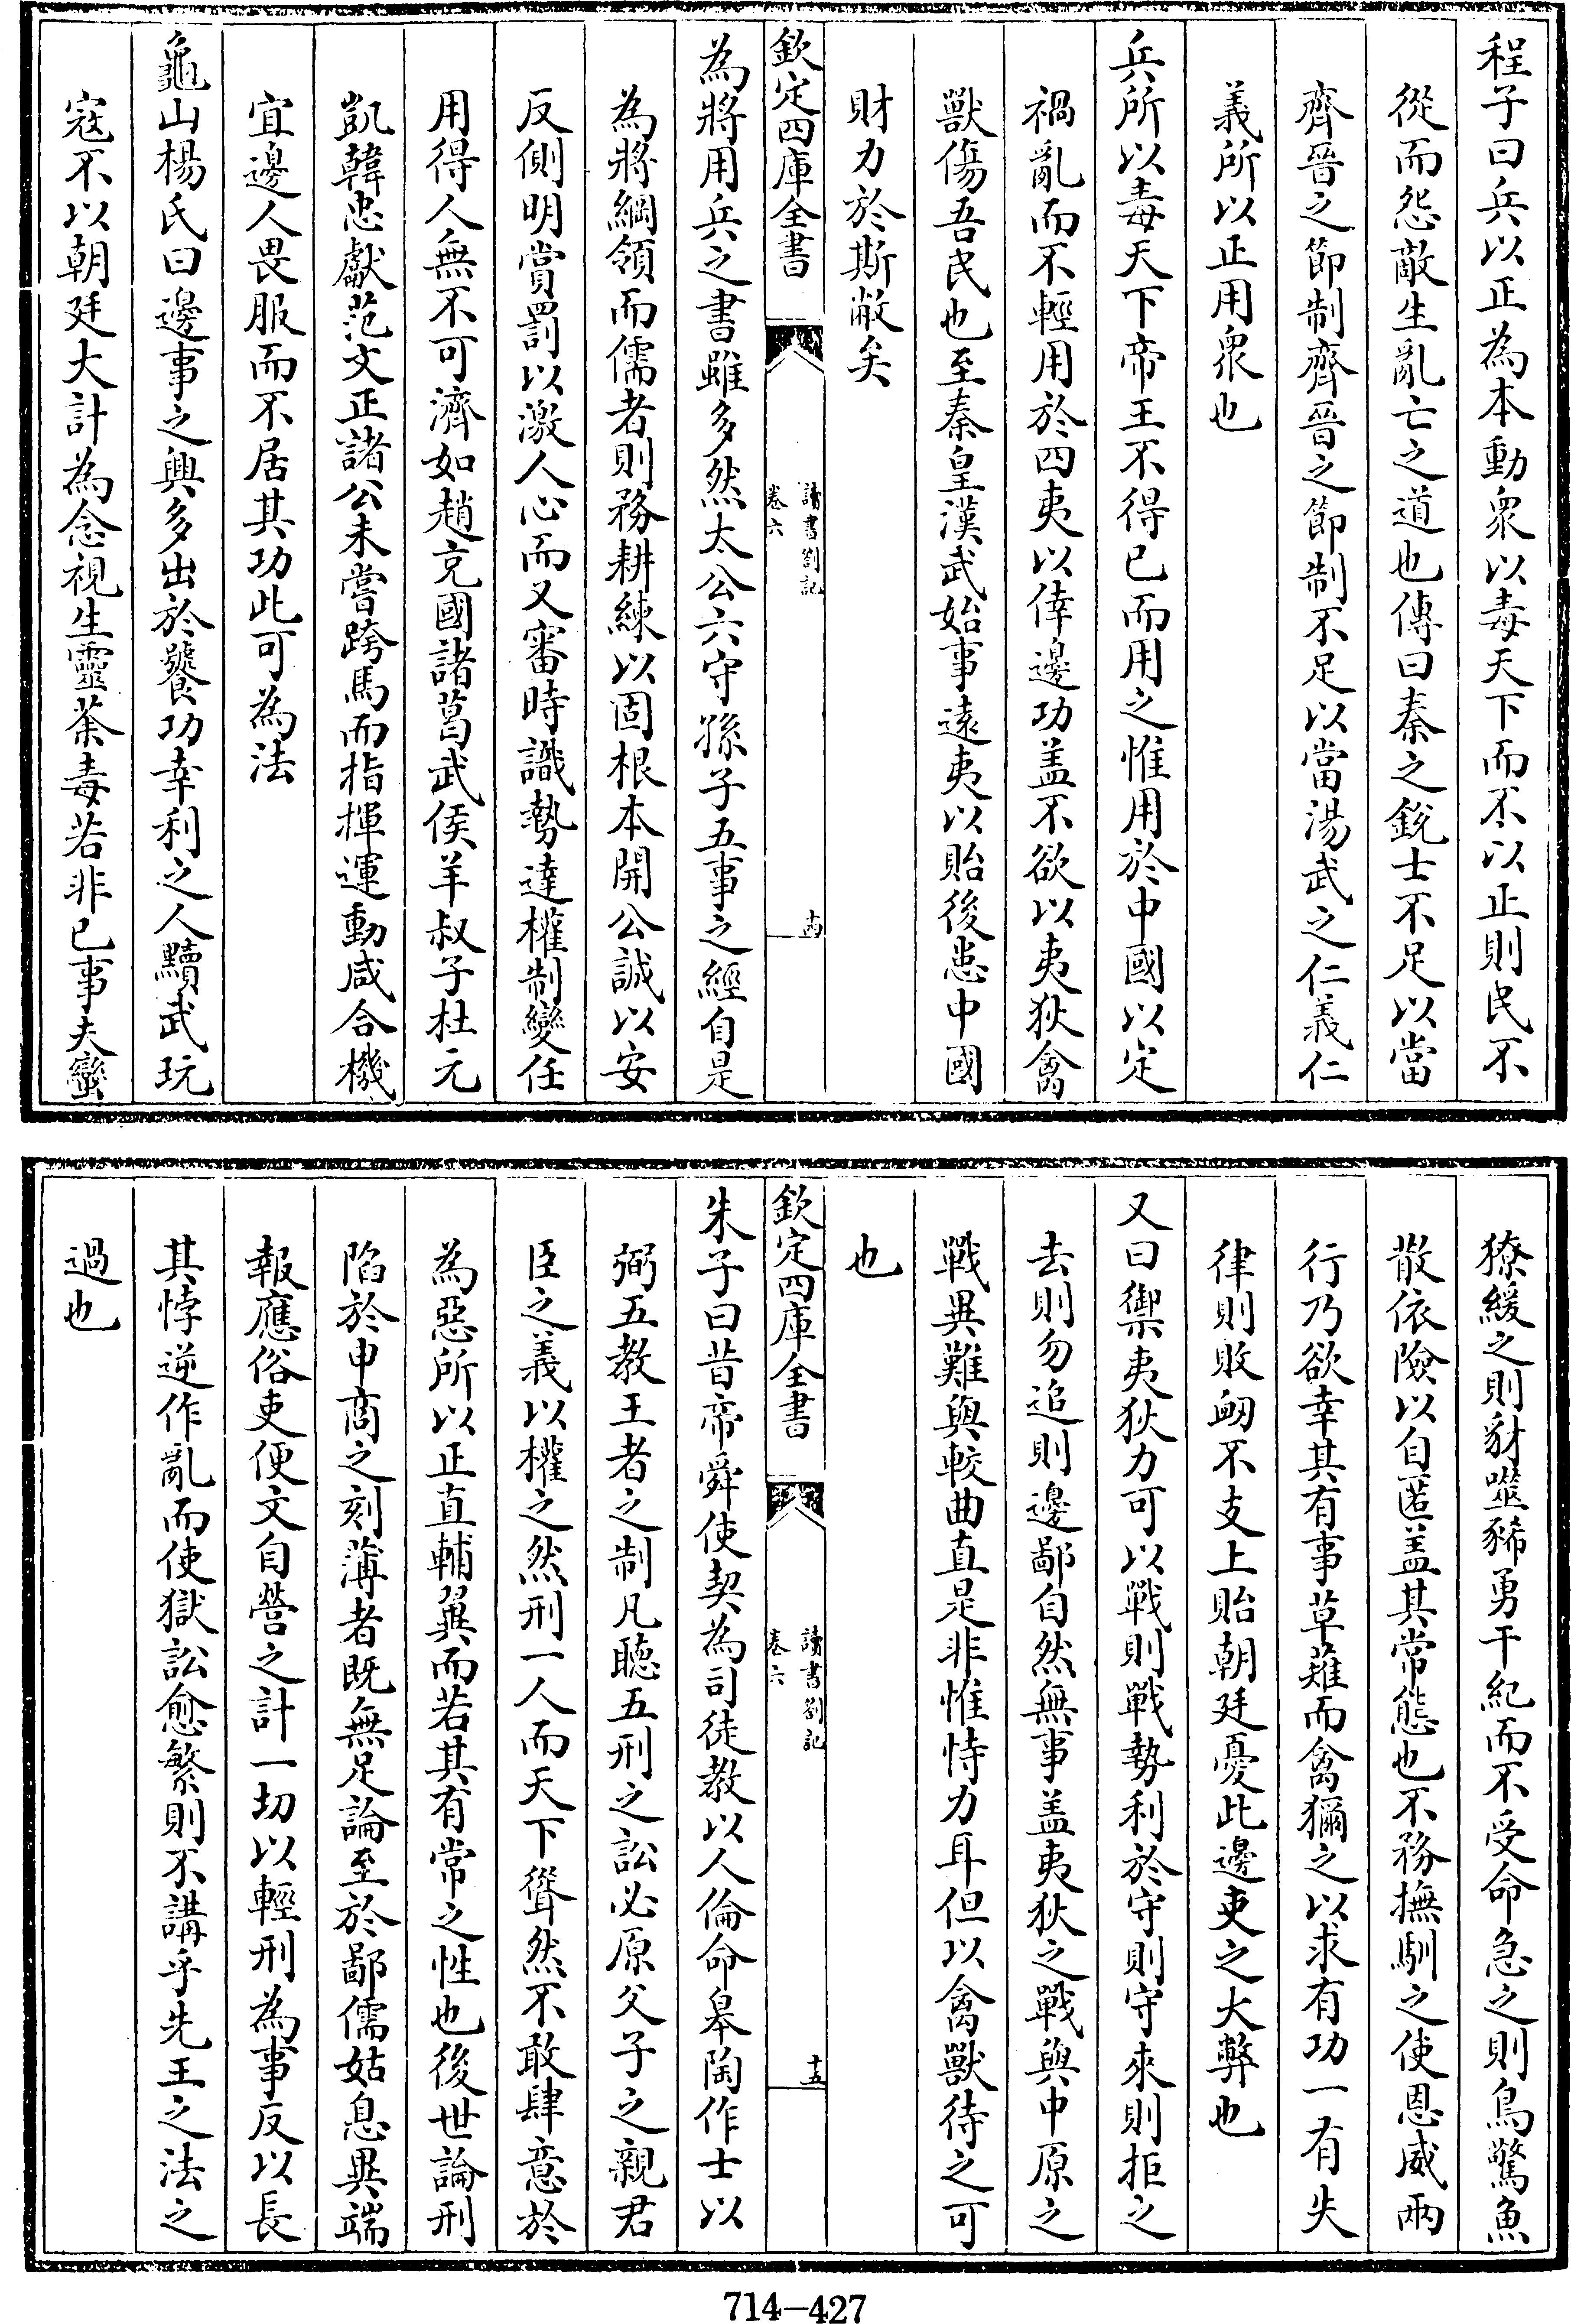 程子曰兵以正為本動衆以毒天下而不以正則民不
從而怨敵生亂亡之道也傳曰秦之鋭士不足以當
齊晉之節制齊晉之節制不足以當湯武之仁義仁
義所以正用衆也
兵所以毒天下帝王不得已而用之惟用於中國以定
禍亂而不輕用於四夷以倖邊功盖不欲以夷狄禽
獸傷吾民也至秦皇漢武始事遠夷以貽後患中國
財力於斯敝矣
欽定四庫全書
讀書劄記
卷六
十四
為將用兵之書雖多然太公六守孫子五事之經自是
為將綱領而儒者則務耕練以固根本開公誠以安
反側明賞罰以激人心而又審時識勢達權制變任
用得人無不可濟如趙充國諸葛武侯羊叔子杜元
凱韓忠獻范文正諸公未嘗跨馬而指揮運動咸合機
宜邊人畏服而不居其功此可為法
龜山楊氏曰邊事之興多出於饕功幸利之人黷武玩
寇不以朝廷大計為念視生靈荼毒若非已事夫蠻
獠緩之則豺噬豨勇干紀而不受命急之則鳥驚魚
散依險以自匿盖其常態也不務撫馴之使恩威兩
行乃欲幸其有事草薙而禽獮之以求有功一有失
律則敗衂不支上貽朝廷憂此邊吏之大弊也
又曰禦夷狄力可以戰則戰勢利於守則守來則拒之
去則勿追則邊鄙自然無事盖夷狄之戰與中原之
戰異難與較曲直是非惟恃力耳但以禽獸待之可
也
欽定四庫全書
讀書劄記
卷六
十五
朱子曰昔帝舜使契為司徒教以人倫命皋陶作士以
弼五教王者之制凡聽五刑之訟必原父子之親君
臣之義以權之然刑一人而天下聳然不敢肆意於
為惡所以正直輔翼而若其有常之性也後世論刑
陷於申商之刻薄者既無足論至於鄙儒姑息異端
報應俗吏便文自營之計一切以輕刑為事反以長
其悖逆作亂而使獄訟愈繁則不講乎先王之法之
過也
714-427